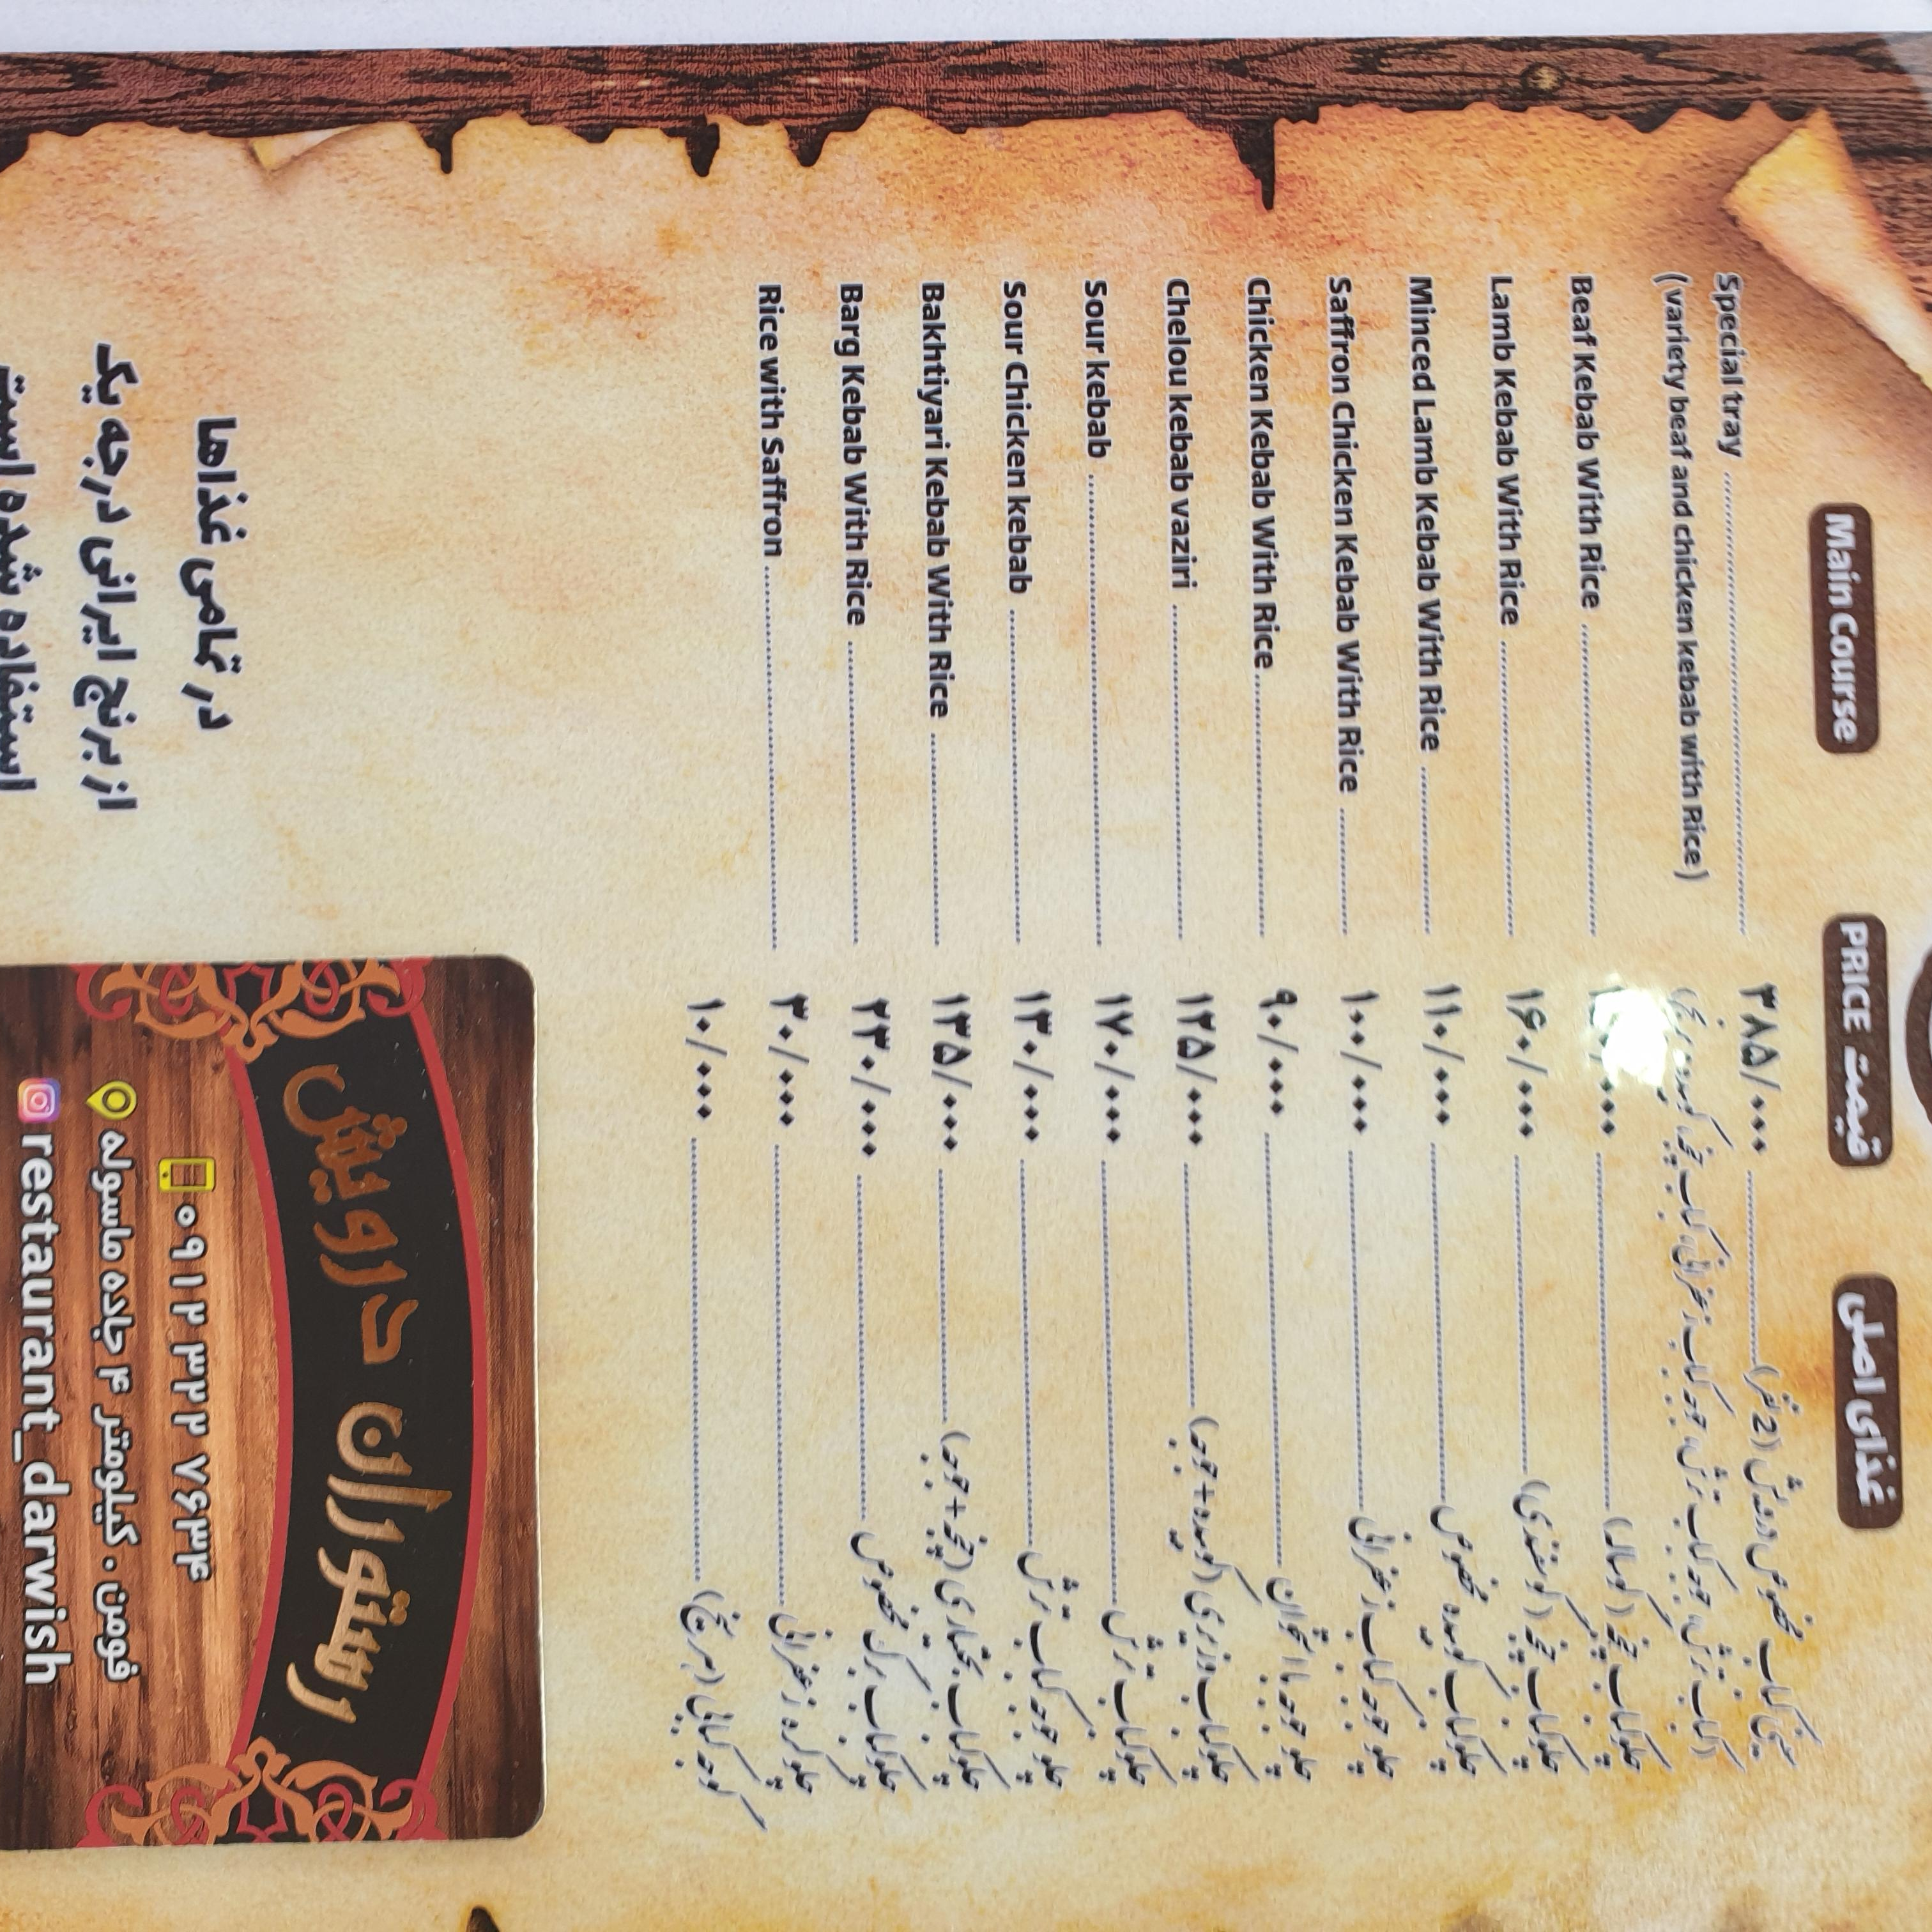 Main Course PRICE قیمت غذای اصلی
Special tray ۳۸۵/۰۰۰ سینی کباب مخصوص درویش (2 نفر)
(variety beaf and chicken kebab with Rice) (کباب ترش، جوجه کباب ترش، جوجه کباب زعفرانی، کباب چنجه، کوبیده، برنج)
Beaf Kebab With Rice چلوکباب چنجه (گوساله)
Lamb Kebab With Rice ۱۶۰/۰۰۰ چلوکباب چنجه (گوسفندی)
Minced Lamb Kebab With Rice ۱۱۰/۰۰۰ چلوکباب کوبیده مخصوص
Saffron Chicken Kebab With Rice ۱۰۰/۰۰۰ چلو جوجه کباب زعفرانی
Chicken Kebab With Rice ۹۰/۰۰۰ چلو جوجه با استخوان
Chelou kebab vaziri ۱۲۵/۰۰۰ چلوکباب وزیری (کوبیده + جوجه)
Sour kebab ۱۷۰/۰۰۰ چلوکباب ترش
Sour Chicken kebab ۱۳۰/۰۰۰ چلو جوجه کباب ترش
Bakhtiyari Kebab With Rice ۱۳۵/۰۰۰ چلوکباب بختیاری (چنجه + جوجه)
Barg Kebab With Rice ۲۳۰/۰۰۰ چلوکباب برگ مخصوص
Rice with Saffron ۳۰/۰۰۰ چلو کره زعفرانی
۱۰/۰۰۰ گوجه کبابی (هر سیخ)
در تمامی غذاها
از برنج ایرانی درجه یک
استفاده شده است
رستوران درویش
۰۹۱۲ ۳۲۲ ۷۶۳۴
فومن . کیلومتر ۴ جاده ماسوله
restaurant_darwish